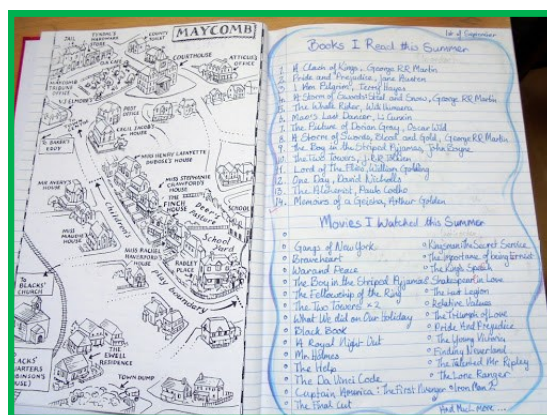 MAYCOMB
JAIL
TYNDAL'S HARDWARE STORE
COUNTY TOILET
COURTHOUSE
ATTICUS'S OFFICE
MAYCOMB TRIBUNE OFFICE
V.J. ELMORE'S
POST OFFICE
CECIL JACOB'S HOUSE
TO BARKER'S EDDY
MRS HENRY LAFAYETTE DUBOSE'S HOUSE
MISS STEPHANIE CRAWFORD'S HOUSE
THE FINCH HOUSE
MR AVERY'S HOUSE
Children's
Deer's Pasture
SCHOOL
School Yard
MISS MAUDIE HOUSE
MISS RACHEL HAVERFORD'S HOUSE
RADLEY PLACE
play boundary
TO BLACKS' CHURCH
THE EWELL RESIDENCE
TOWN DUMP
1st of September
Books I Read this Summer
1. A Clash of Kings, George RR Martin
2. Pride and Prejudice, Jane Austen
3. I Am Pilgrim, Terry Hayes
4. A Storm of Swords: Steel and Snow, George RR Martin
5. The Whale Rider, Witi Ihimaera
6. Mao's Last Dancer, Li Cunxin
7. The Picture of Dorian Gray, Oscar Wild
8. A Storm of Swords, Blood and Gold, George RR Martin
9. The Boy in the Striped Pyjamas, John Boyne
10. The Two Towers, J.R.R Tolkien
11. Lord of The Flies, William Golding
12. One Day, David Nicholls
13. The Alchemist, Paulo Coelho
14. Memoirs of a Geisha, Arthur Golden
Movies I Watched this Summer
Gangs of New York
Braveheart
War and Peace
The Boy in the Striped Pyjamas
The Fellowship of the Ring
The Two Towers x2
What We did on Our Holiday
Black Book
A Royal Night Out
Mr Holmes
The Help
The Da Vinci Code
Captain America: The First Avenger
The Final Cut
Kingsman The Secret Service
The Importance of being Ernest
The King's Speech
Shakespeare in Love
The Last Legion
Relative Values
The Triumph of Love
Pride And Prejudice
The Young Victoria
Finding Neverland
The Talented Mr Ripley
The Lone Ranger
Iron Man 2
And Much More....